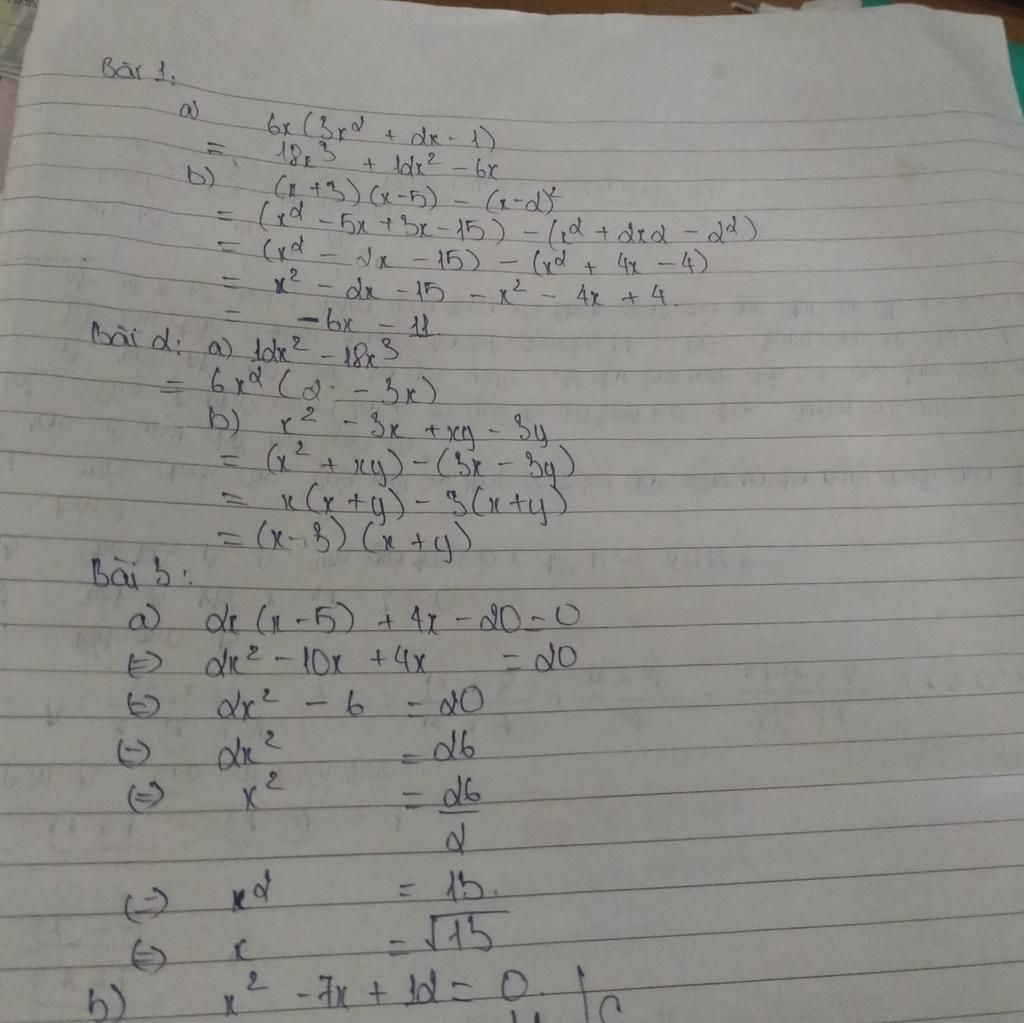 Bài 1:
a) 6x(3x² + 2x - 1)
= 18x³ + 12x² - 6x
b) (x+3)(x-5) - (x-2)²
= (x² - 5x + 3x - 15) - (x² + 2x2 - 2²)
= (x² - 2x - 15) - (x² + 4x - 4)
= x² - 2x - 15 - x² - 4x + 4.
= -6x - 11
Bài 2: a) 12x² - 18x³
= 6x²(2 - 3x)
b) x² - 3x + xy - 3y
= (x² + xy) - (3x - 3y)
= x(x+y) - 3(x+y)
= (x-3)(x+y)
Bài 3:
a) 2x(x-5) + 4x - 20 = 0
⇔ 2x² - 10x + 4x = 20
⇔ 2x² - 6 = 20
⇔ 2x² = 26
⇔ x² = 26/2
⇔ x² = 13.
⇔ x = √13
b) x² - 7x + 12 = 0